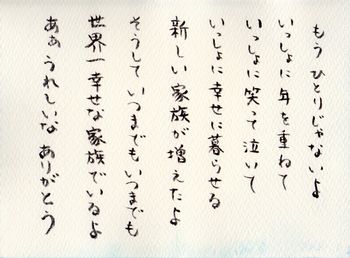 もう ひとりじゃないよ
いっしょに 年を重ねて
いっしょに 笑って 泣いて
いっしょに 幸せに 暮らせる
新しい 家族が 増えたよ
そうして いつまでも いつまでも
世界一 幸せな 家族でいるよ
あぁ うれしいな ありがとう